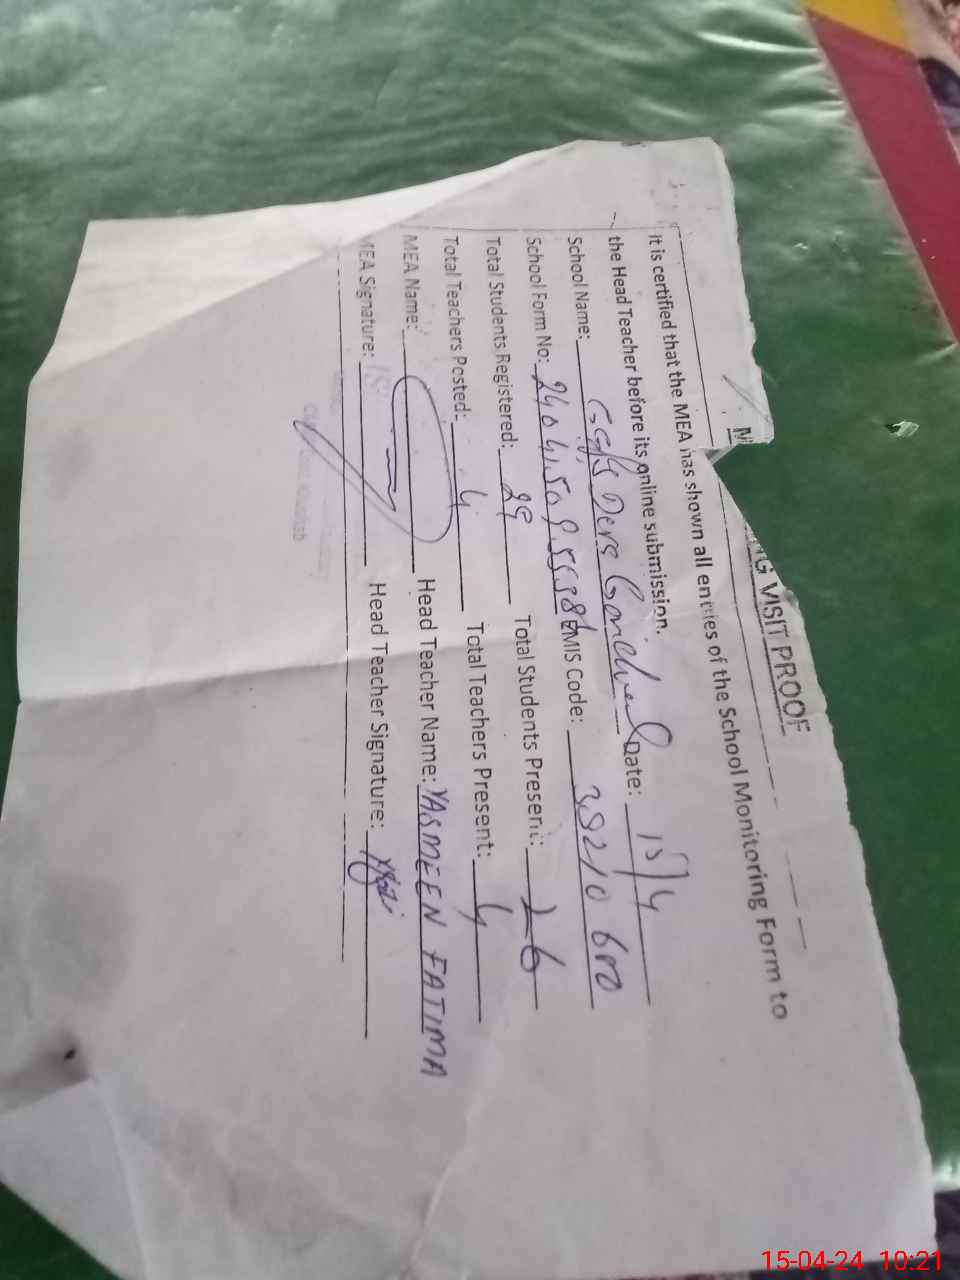 NG VISIT PROOF
It is certified that the MEA has shown all entries of the School Monitoring Form to
the Head Teacher before its online submission.
School Name: Date: 15/4
School Form No: EMIS Code: 39210600
Total Students Registered: 29 Total Students Present: 26
Total Teachers Posted: 4 Total Teachers Present: 4
MEA Name: Head Teacher Name: YASMEEN FATIMA
MEA Signature: Head Teacher Signature:
15-04-24 10:21